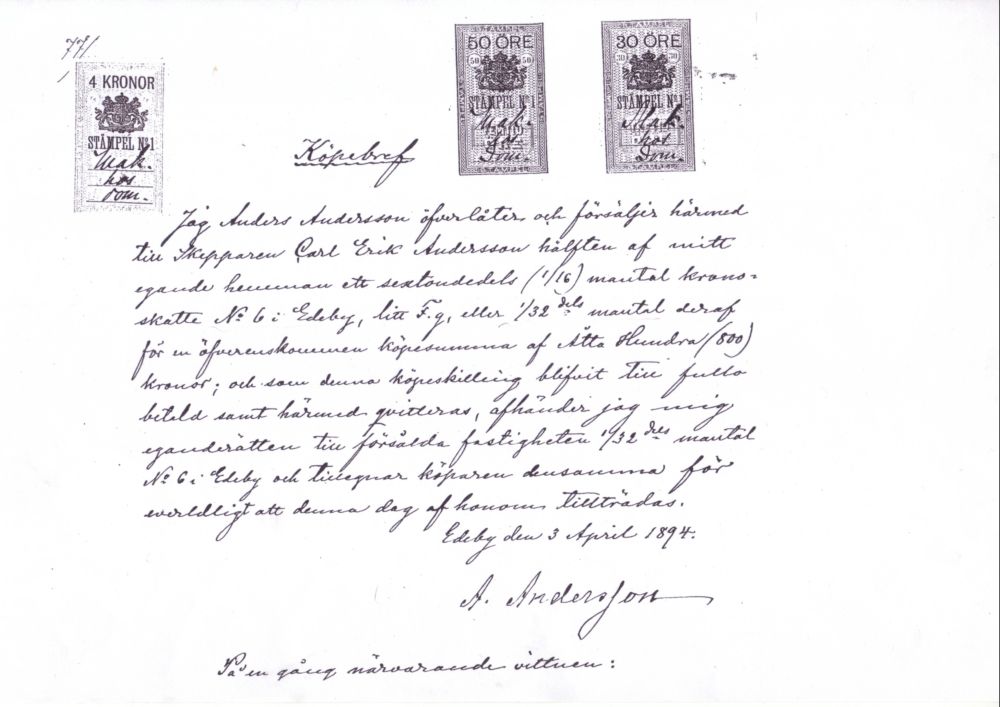 77/
4 KRONOR
STÄMPEL No 1
Mak.
hos
Dom.
STÄMPEL
50 ÖRE
50 50
STÄMPEL No 1
Mak.
hos
Dom.
STÄMPEL
STÄMPEL
30 ÖRE
30 30
STÄMPEL No 1
Mak.
hos
Dom.
STÄMPEL
Köpebref
Jag Anders Andersson öfverlåter och försäljer härmed
till Skepparen Carl Erik Andersson hälften af mitt
egande hemman ett sextondedels (1/16) mantal krono-
skatte No 6 i Edeby, litt F.g, eller 1/32 dels mantal deraf
för en öfverenskommen köpesumma af Åtta Hundra (800)
kronor; och som denna köpeskilling blifvit till fullo
betald samt härmed qvitteras, afhänder jag mig
eganderätten till försålda fastigheten 1/32 dels mantal
No 6 i Edeby och tillegnar köparen densamma för
everldligt att denna dag af honom tillträdas.
Edeby den 3 April 1894.
A. Andersson
På en gång närvarande vittnen: